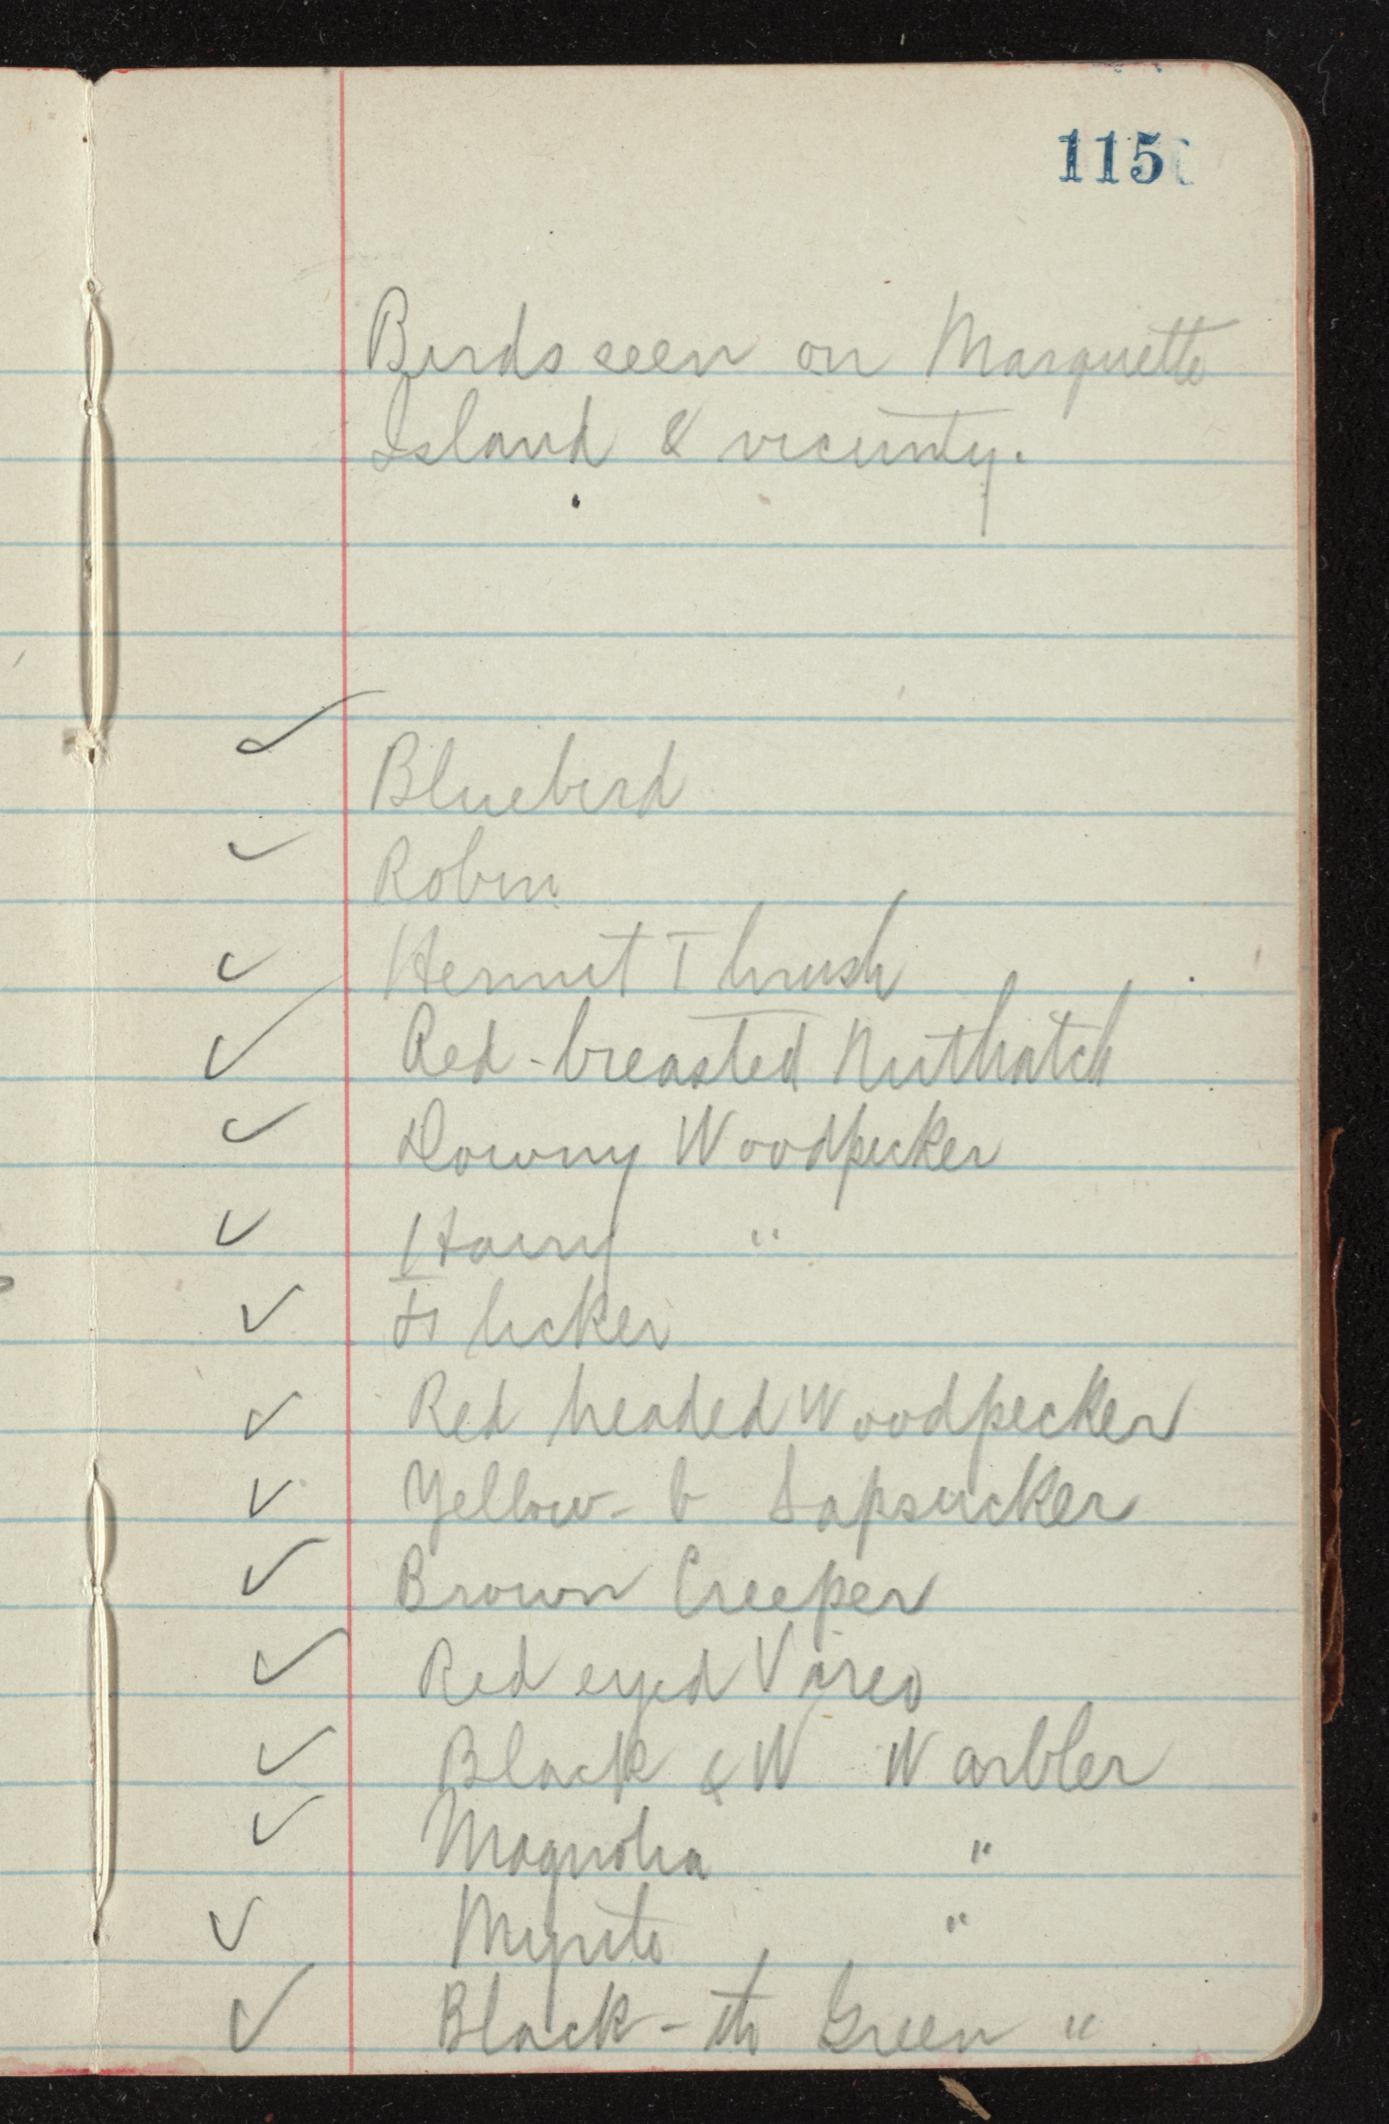 115
Birds seen on Marquette
Island & vicinity.
✓ Bluebird
✓ Robin
✓ Hermit Thrush
✓ Red-breasted Nuthatch
✓ Downy Woodpecker
✓ Hairy "
✓ Flicker
✓ Red headed Woodpecker
✓ Yellow-b Sapsucker
✓ Brown Creeper
✓ Red eyed Vireo
✓ Black & W Warbler
✓ Magnolia "
✓ Myrtle "
✓ Black-th Green "